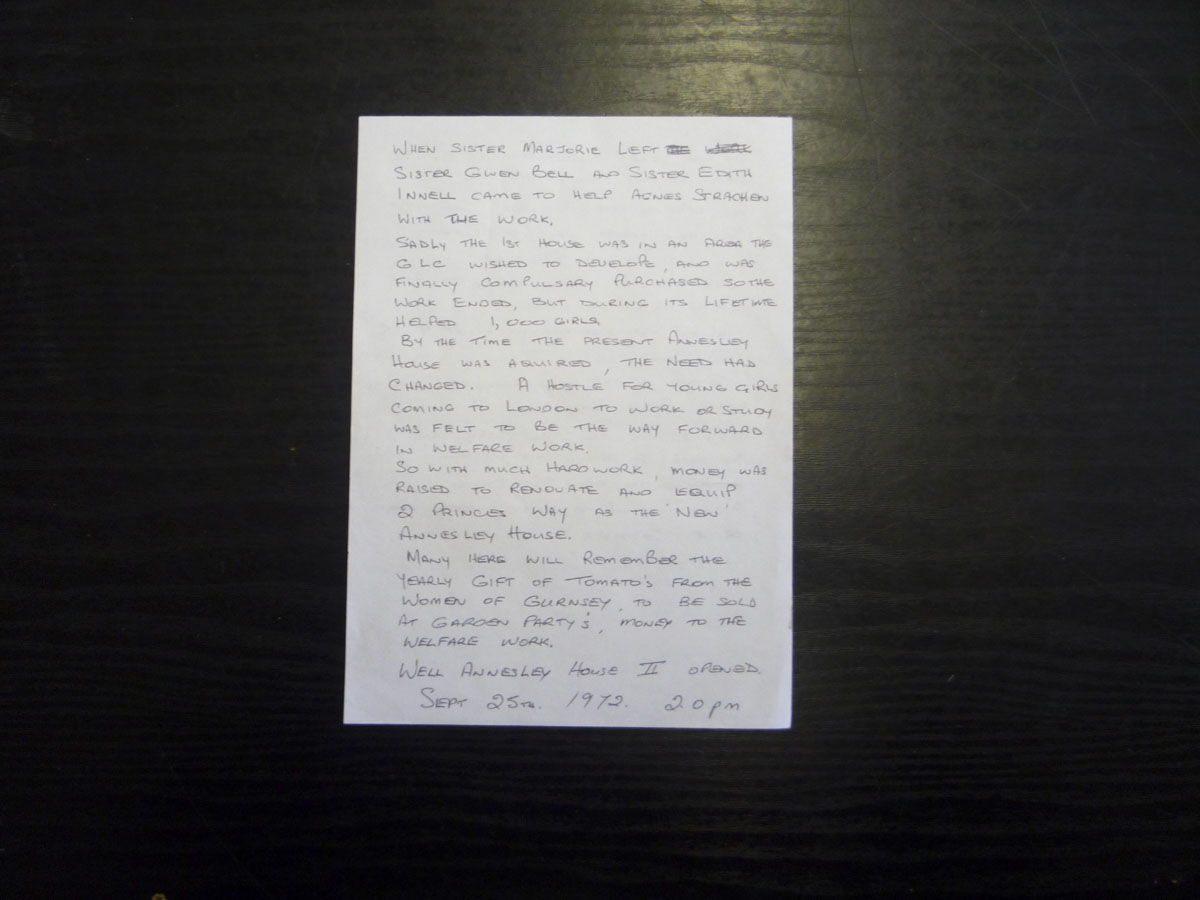 WHEN SISTER MARJORIE LEFT
SISTER GWEN BELL AND SISTER EDITH
INNELL CAME TO HELP AGNES STRACHEN
WITH THE WORK.
SADLY THE 1ST HOUSE WAS IN AN AREA THE
GLC WISHED TO DEVELOPE, AND WAS
FINALLY COMPULSARY PURCHASED SO THE
WORK ENDED, BUT DURING ITS LIFETIME
HELPED 1,000 GIRLS.
BY THE TIME THE PRESENT ANNESLEY
HOUSE WAS AQUIRIED, THE NEED HAD
CHANGED. A HOSTLE FOR YOUNG GIRLS
COMING TO LONDON TO WORK OR STUDY
WAS FELT TO BE THE WAY FORWARD
IN WELFARE WORK.
SO WITH MUCH HARD WORK, MONEY WAS
RAISED TO RENOVATE AND EQUIP
2 PRINCES WAY AS THE 'NEW'
ANNESLEY HOUSE.
MANY HERE WILL REMEMBER THE
YEARLY GIFT OF TOMATO'S FROM THE
WOMEN OF GURNSEY, TO BE SOLD
AT GARDEN PARTY'S, MONEY TO THE
WELFARE WORK.
WELL ANNESLEY HOUSE II OPENED.
SEPT 25TH. 1972. 2.0 pm